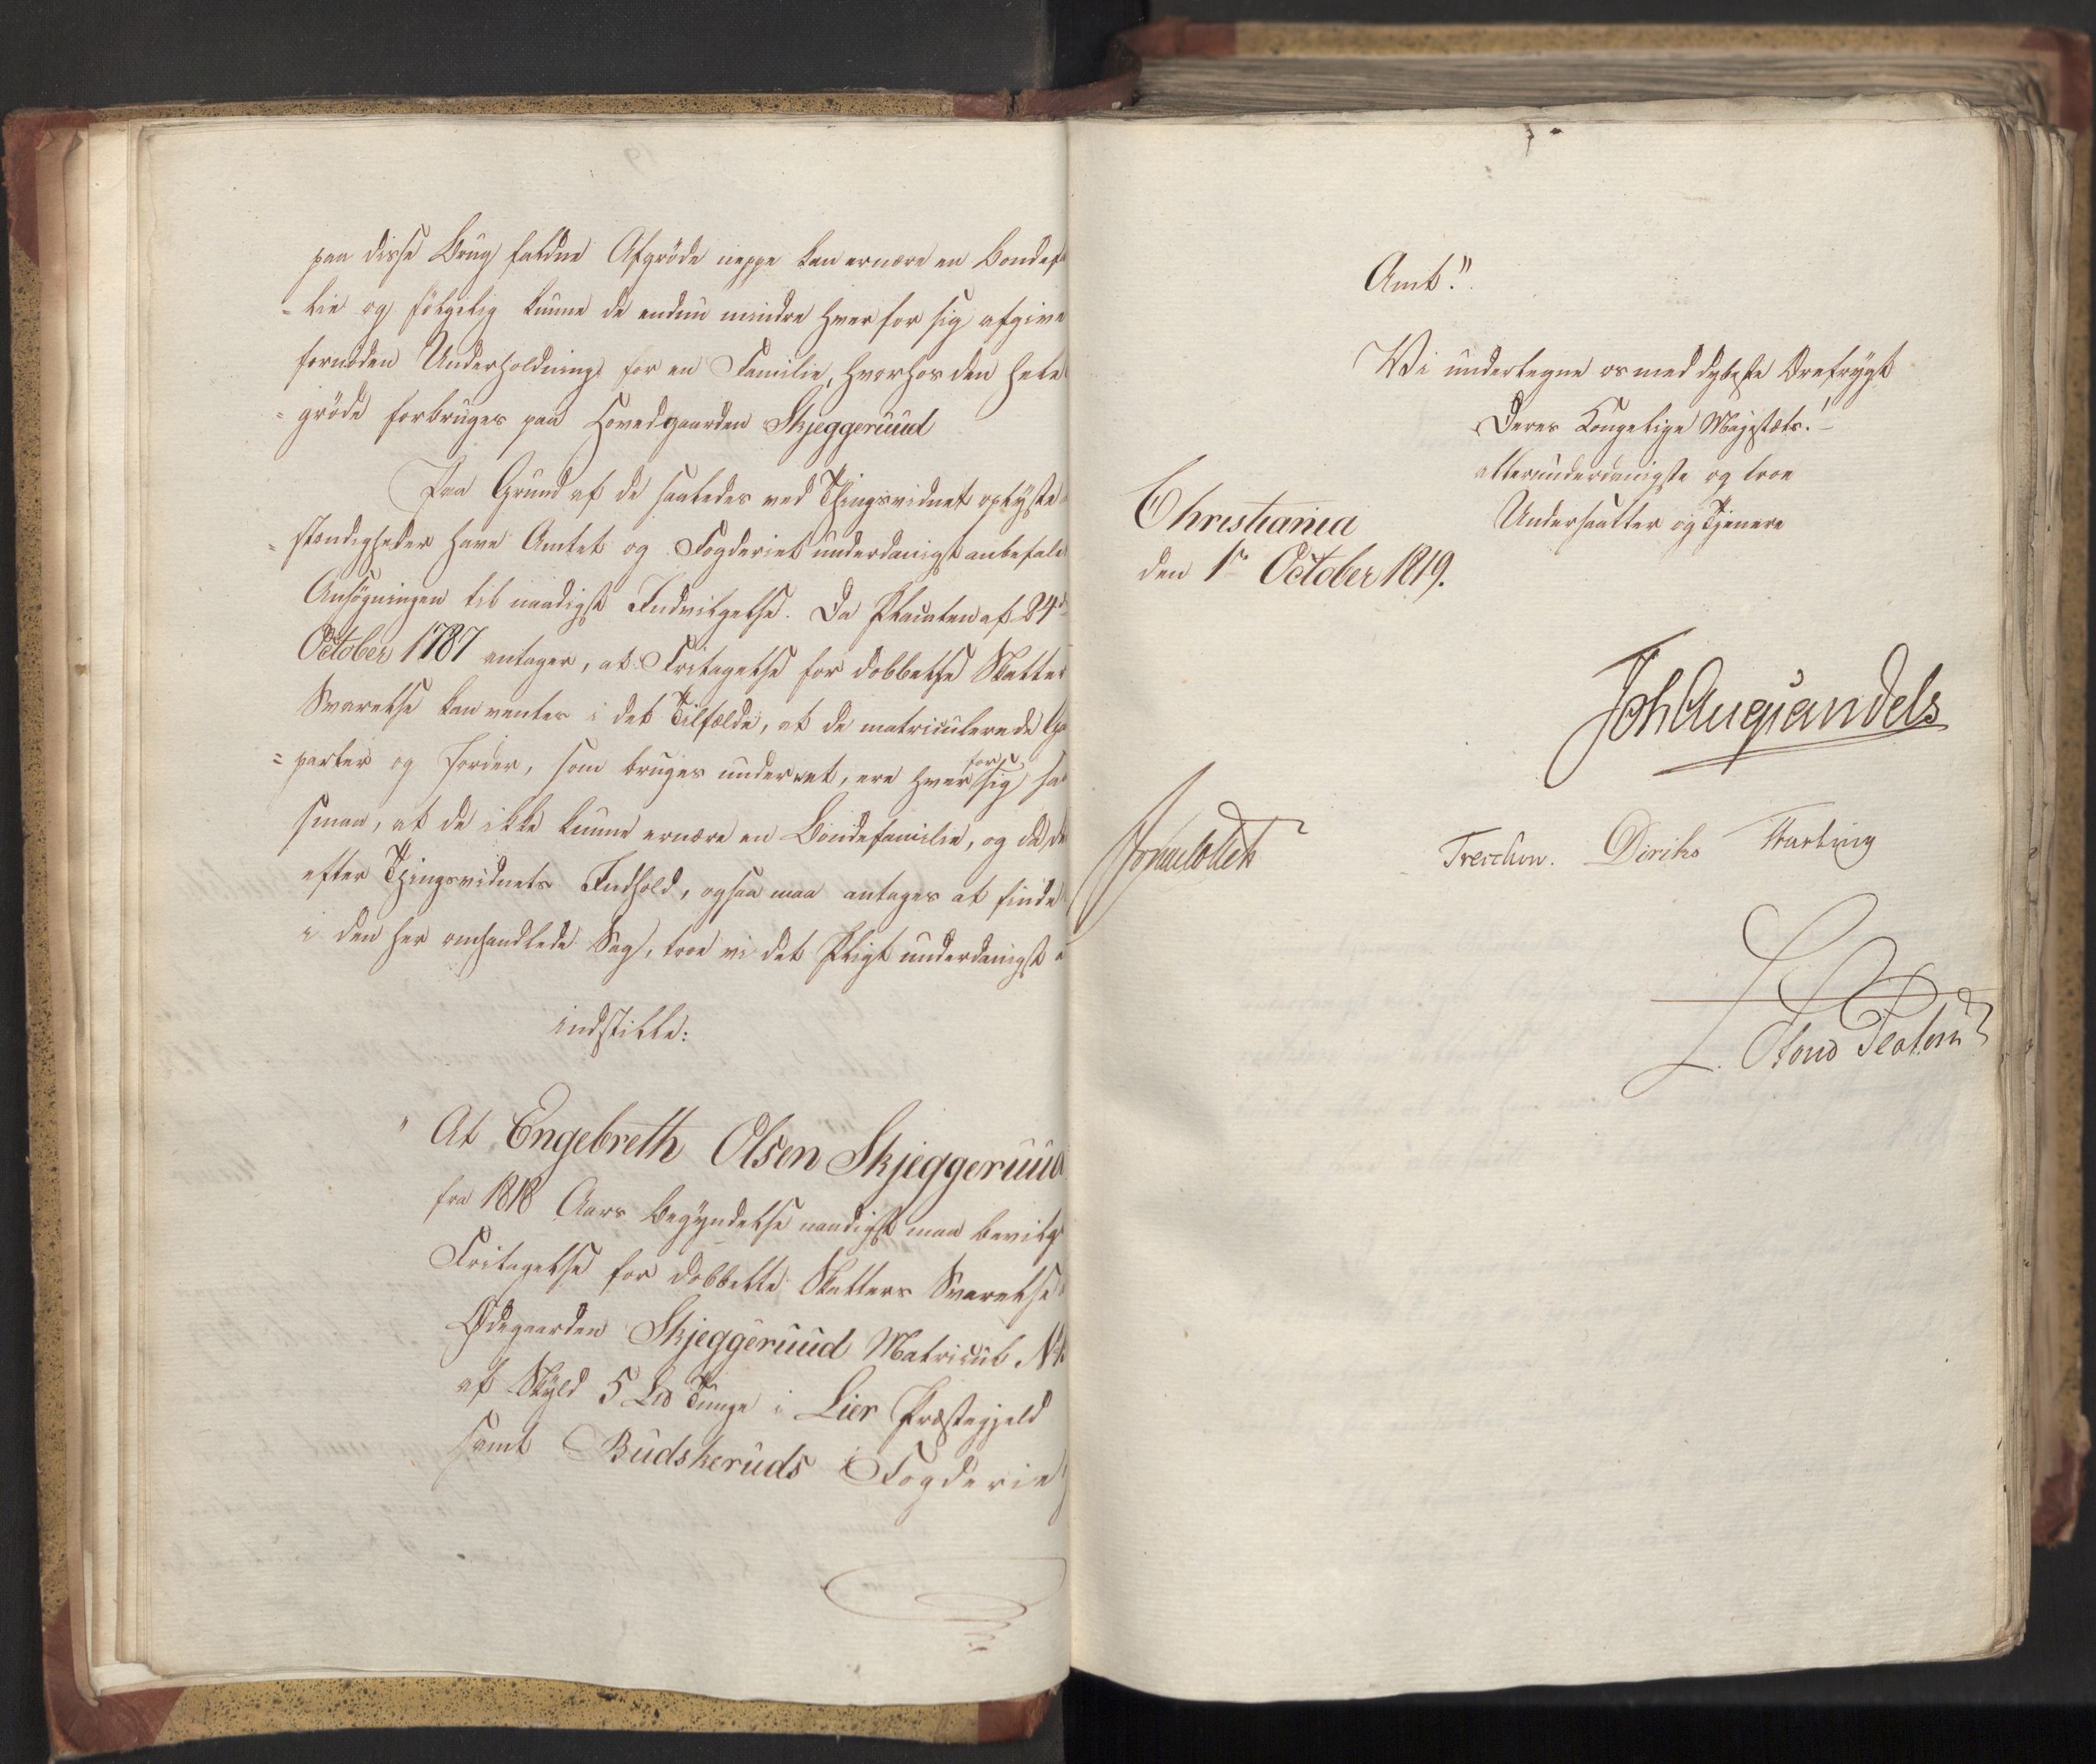 paa disse Brug faldne Afgröde neppe kan ernære en Bondef
-lie og fölgelig kunne de endnu mindre hver for sig afgive
fornöden Underholdning for en Familie, hvorhos den hele
=gröde forbruges paa Hovedgaarden Skjeggeruud
Paa Grund af de saaledes ved Thingsvidnet oplyste
=stændigheder have Amtet og Fogderiet underdanigst anbefale
Ansögningen til naadigst Indvilgelse. Da Placaten af 24de
October 1787 antager, at Fritagelse for dobbelte Skatters
Svarelse kan ventes i det Tilfælde, at de matriculerede
=parter og Jorder, som bruges under eet, ere hver for sig saa
smaa, at de ikke kunne ernære en Bondefamilie, og da de
efter Thingsvidnets Indhold, ogsaa maa antages at finde
i den her omhandlede Sag, troe vi det Pligt underdanigst a
indstille:
" At Engebreth Olsen Skjeggeruud
fra 1818 Aars Begyndelse naadigst maa bevilg
Fritagelse for dobbelte Skatters Svarelse
Ödegaarden Skjeggeruud Matricul No
af Skyld 5 Ld Tunge i Lier Præstegjeld
samt Budskeruds Fogderie
Amt."
Vi undertegne os med dybeste Ærefrygt
Deres Kongelige Majestæts!
allerunderdanigste og troe
Undersaatter og Tjenere
Christiania
den 1ste October 1819.
Joh Aug Sandels
Sommerfeldt
Treschow. Diriks Fasting
L. Stoud Platou